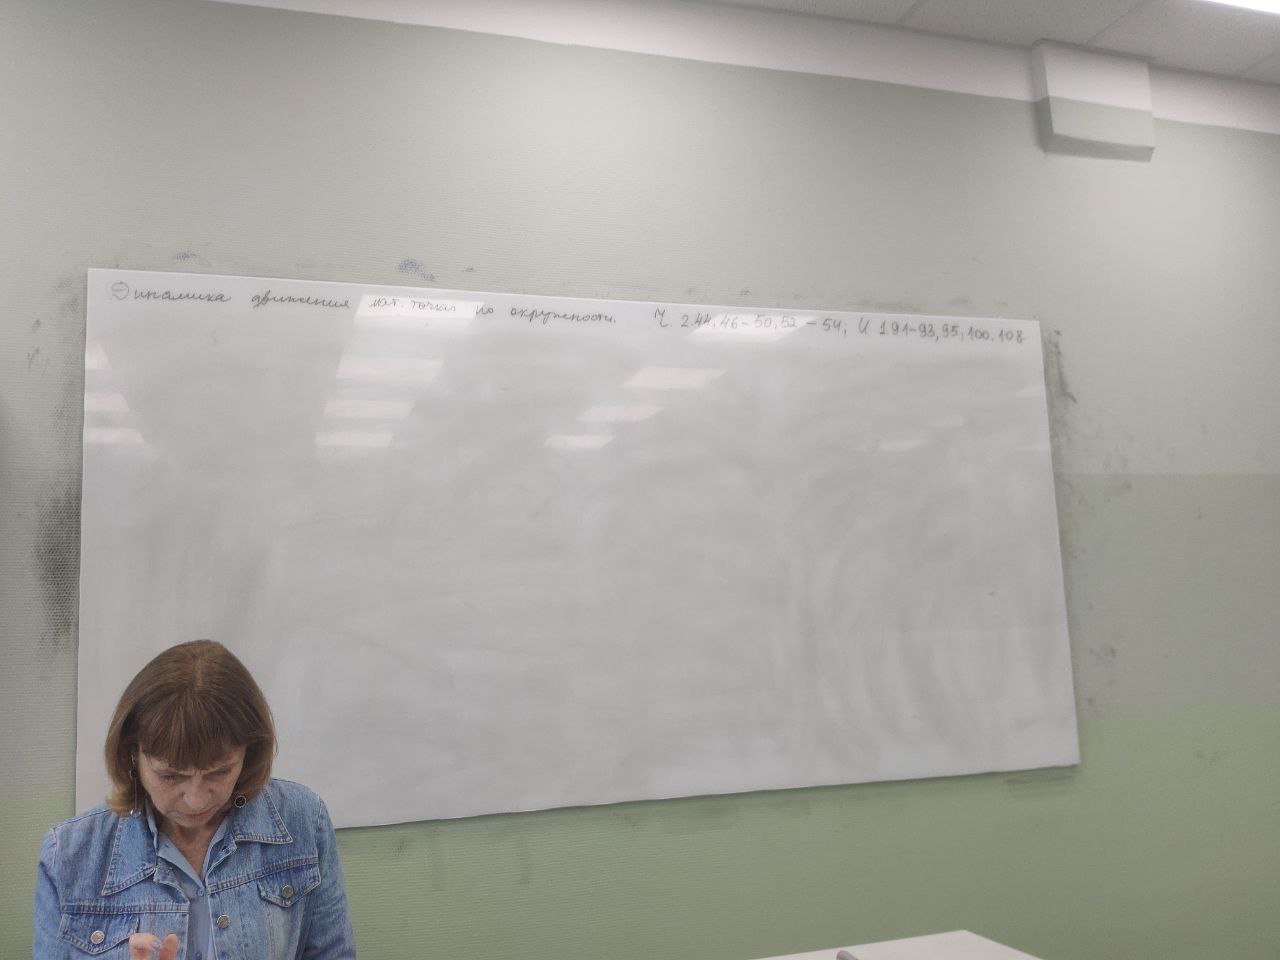 Динамика движения мат. точки по окружности. Ч. 2.44, 46-50, 52-54; И 1.91-93, 95, 100, 108